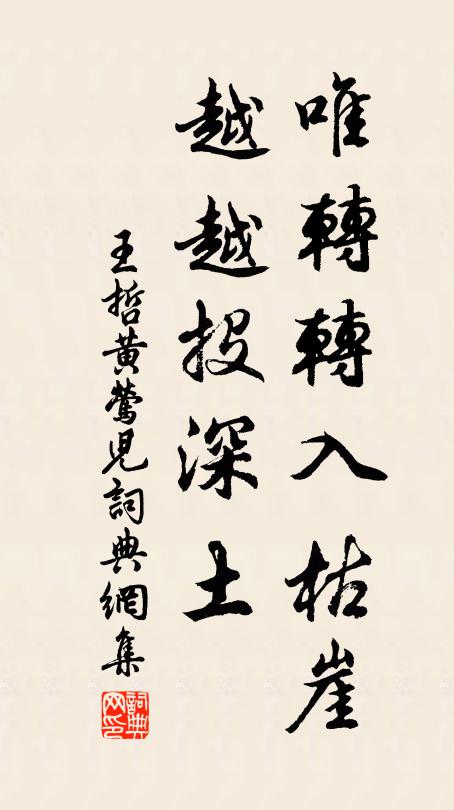 唯轉轉入枯崖
越越投深土
王哲黃鶯兒詞典網集
詞典网印